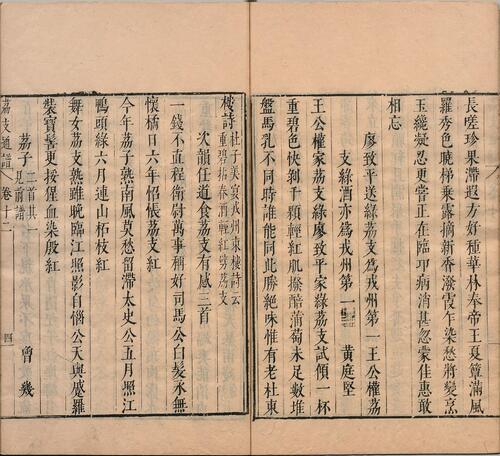 長嗟珍果滯遐方好種華林奉帝王夏簟滿風
羅秀色曉梯乘露摘新香潑霞乍染愁將變烹
玉纔凝忍更嘗正在臨甲病消甚忽蒙佳惠敢
相忘
廖致平送綠荔支爲戎州第一王公權荔
支綠酒亦爲戎州第一
黃庭堅
王公權家荔支綠廖致平家綠荔支試傾一杯
重碧色快剝千顆輕紅肌撥醅蒲萄未足數堆
盤馬乳不同時誰能同此勝絶味惟有老杜東
樓詩
杜子美宴戎州東樓詩云
重碧拈春酒輕紅劈荔支
次韻任道食荔支有感三首
一錢不直程衛尉萬事稱好司馬公白髮永無
懷橘日六年惆悵荔支紅
今年荔子熟南風莫愁留滯太史公五月照江
鴨頭綠六月連山柘枝紅
舞女荔支熟雖晩臨江照影自惱公天與蹙羅
裝寶髻更挼猩血染殷紅
荔子
二首其一
見前譜
曾幾
荔支通譜
卷十二
四